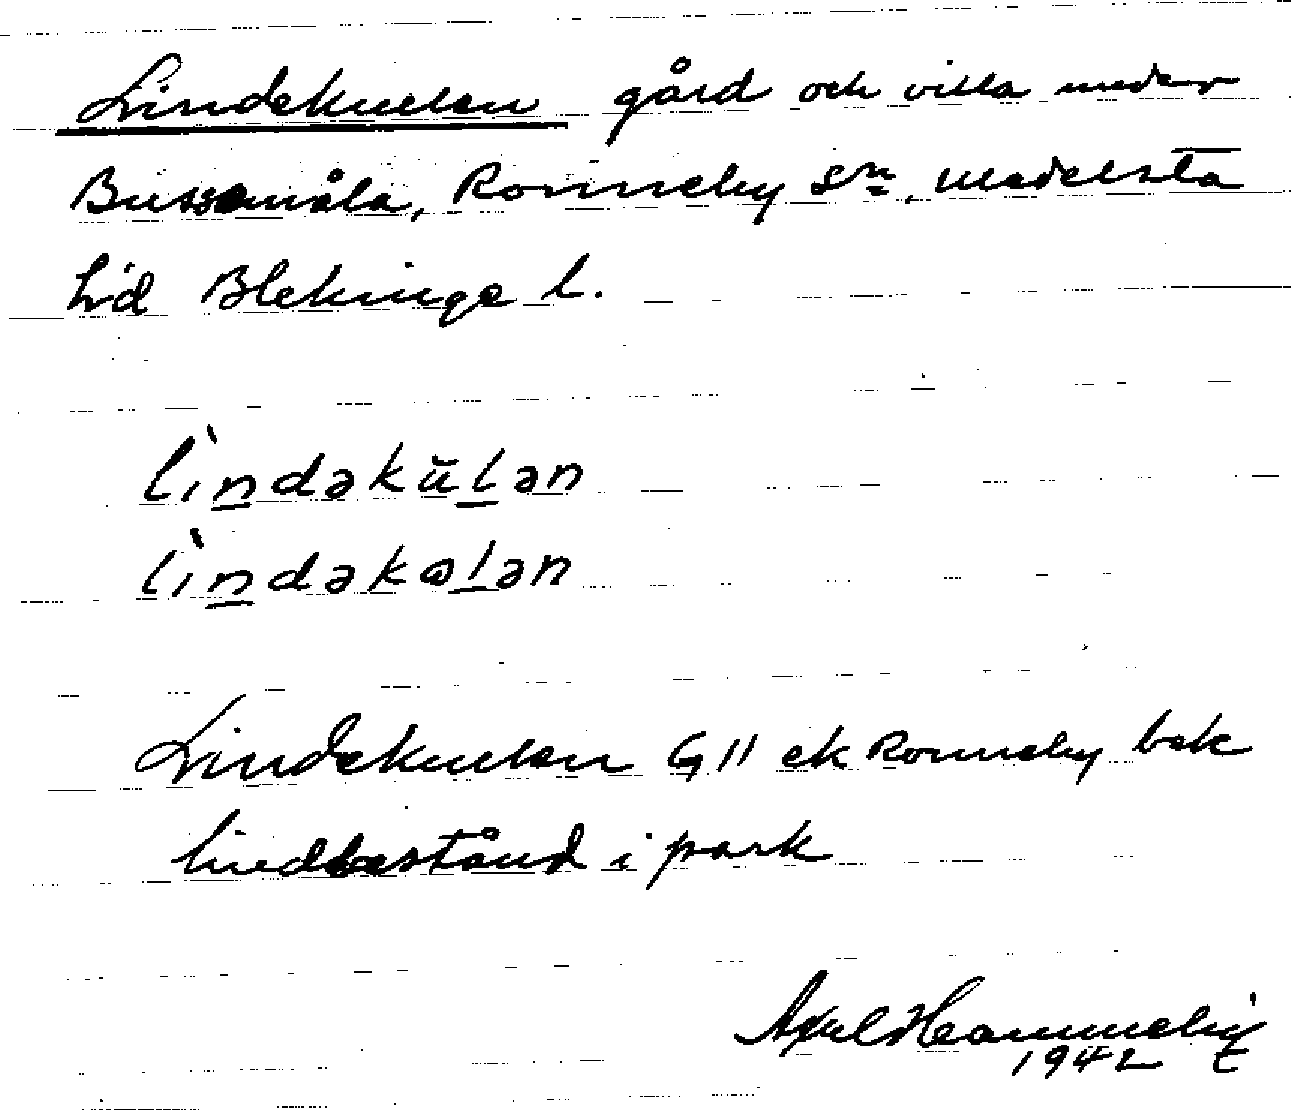 Lindekullen gård och villa under
Bussemåla, Ronneby sn, Medelsta
hd Blekinge l.
lìndəkŭlən
lìndəkɷlən
Lindekullen G11 ek Ronneby bok
lindbestånd i park
Axel Hammeby
1942